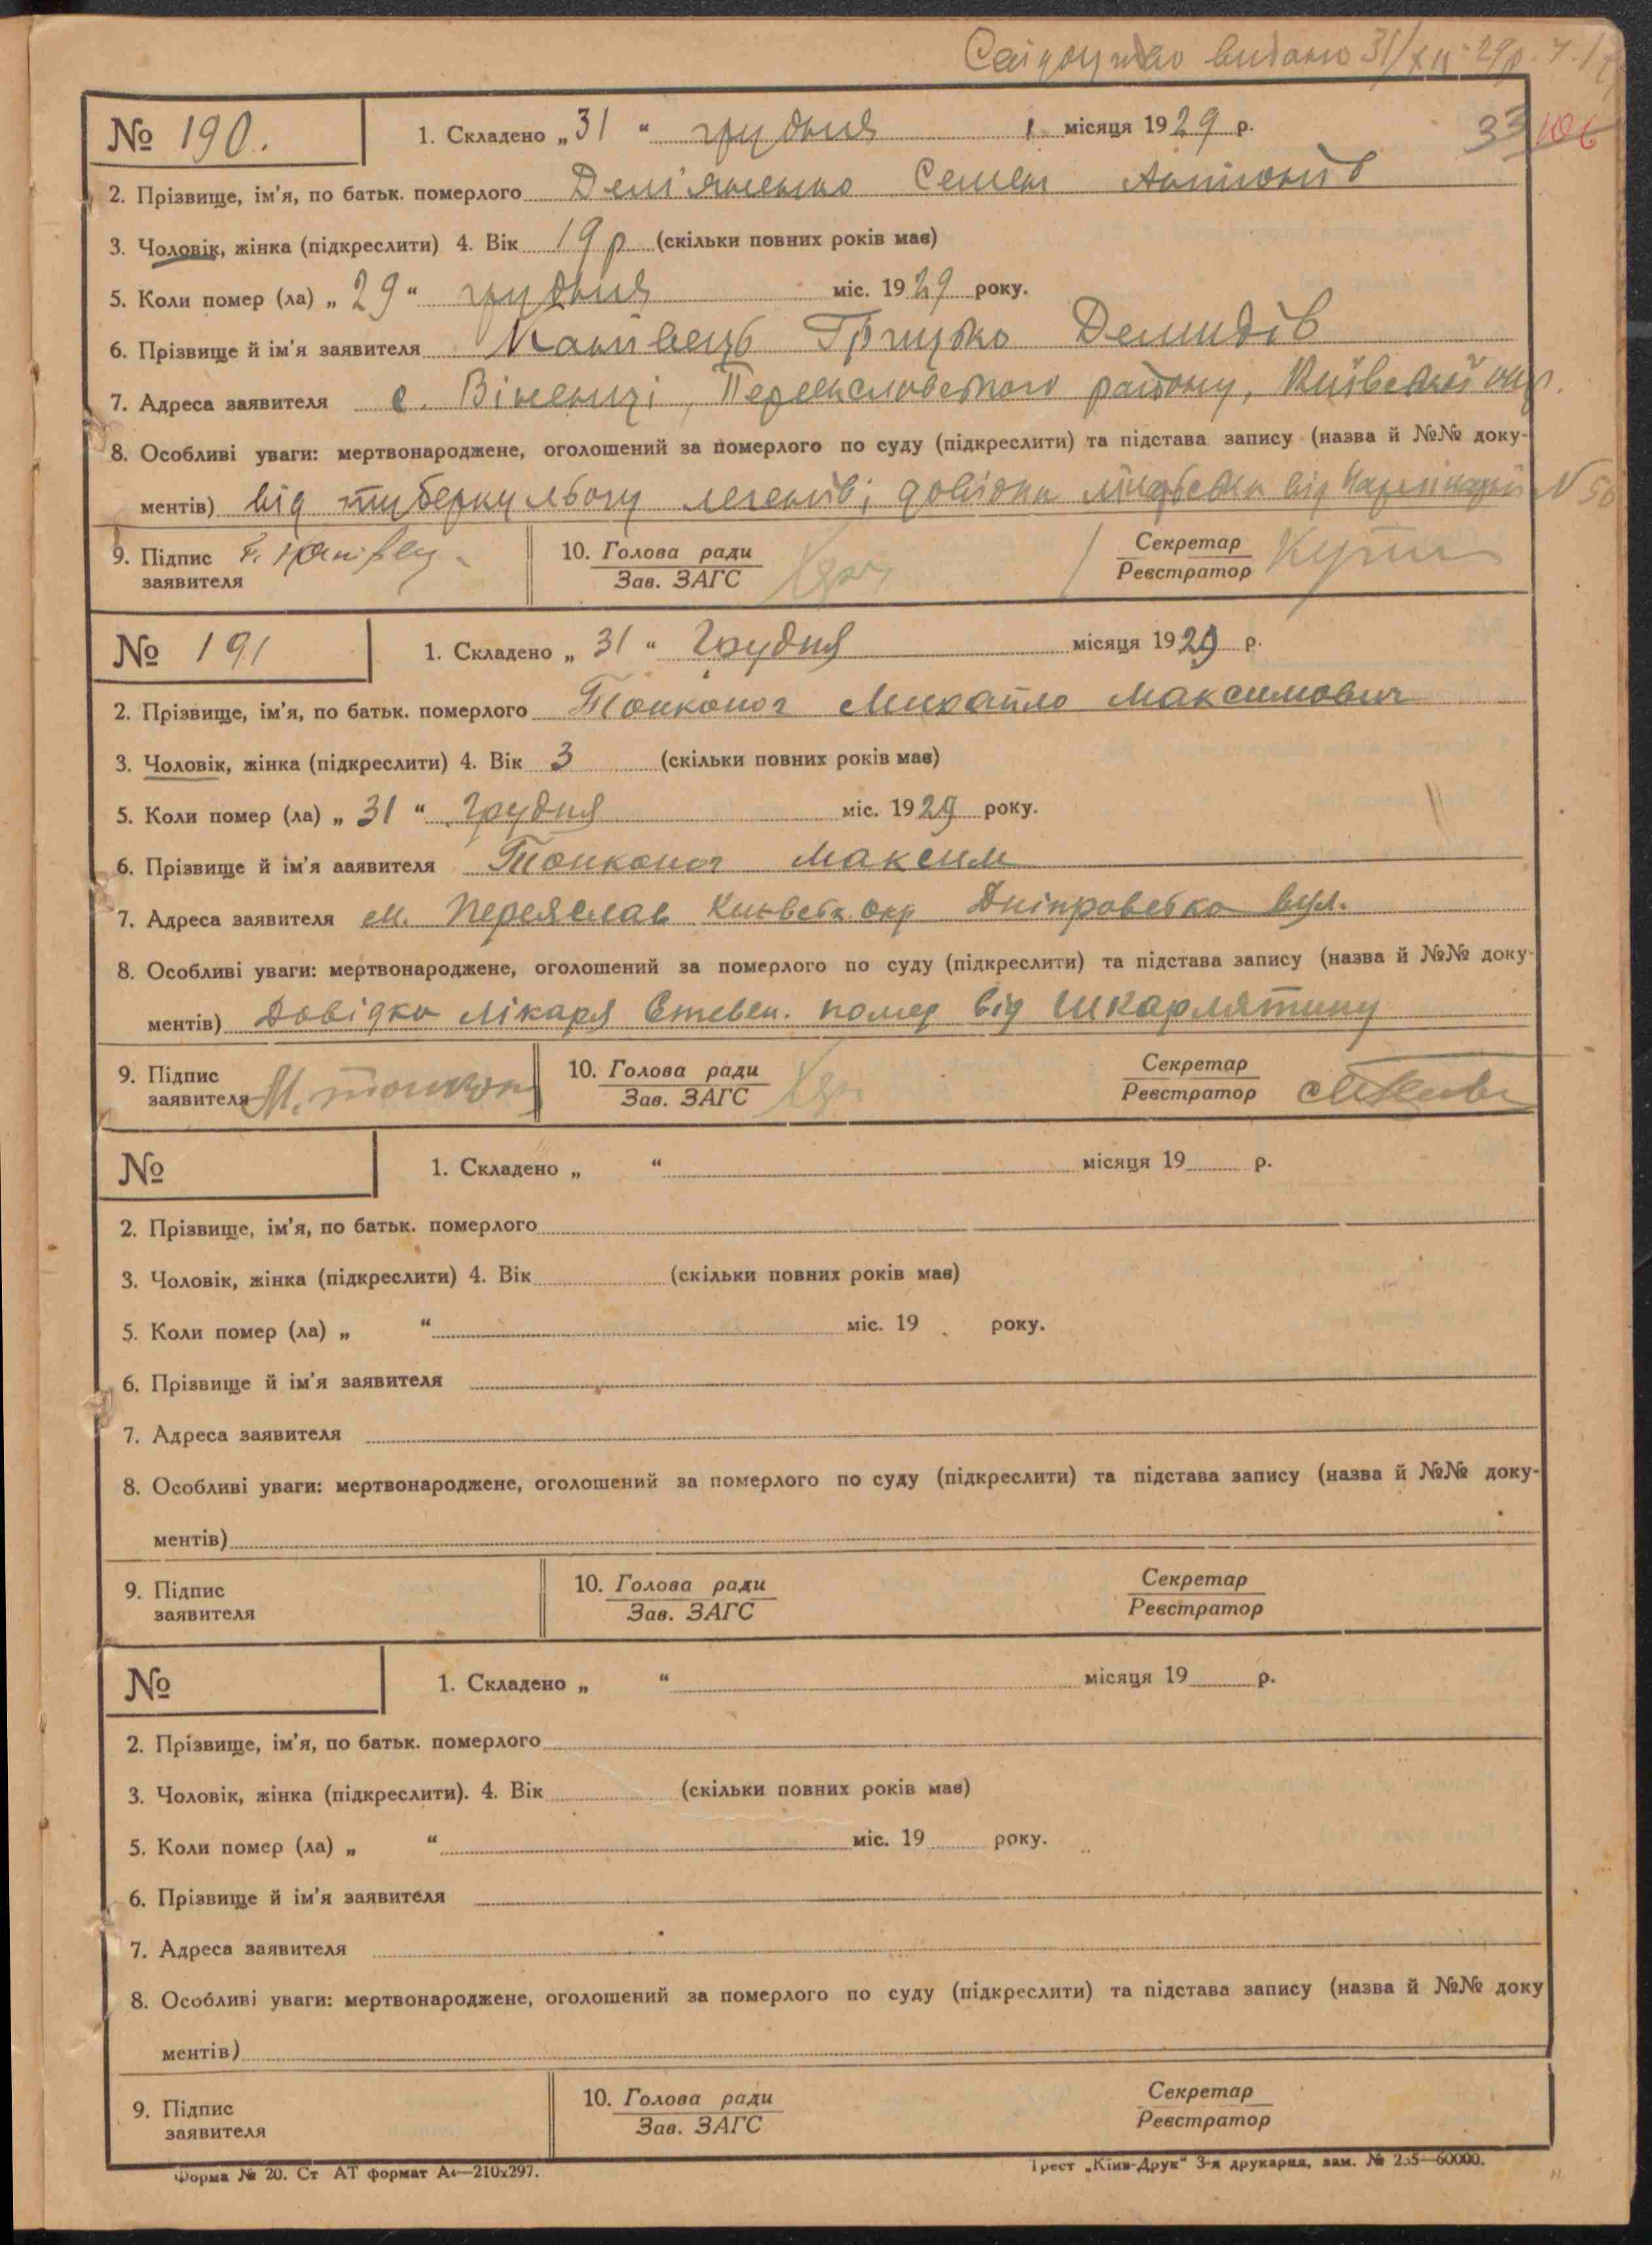 видано 31/XII-29р.
№ 190. 1. Складено „31“ грудня місяця 1929 р. 33
2. Прізвище, ім'я, по батьк. померлого Дем'яненко Семен Антонів
3. Чоловік, жінка (підкреслити) 4. Вік 19 р (скільки повних років має)
5. Коли помер (ла) „29“ грудня міс. 1929 року.
6. Прізвище й ім'я заявителя Канівець Грицько Демидів
7. Адреса заявителя с. Віненці, Переяславського району, Київської окр.
8. Особливі уваги: мертвонароджене, оголошений за померлого по суду (підкреслити) та підстава запису (назва й №№ доку-
ментів) від туберкульозу легенів; довідка
9. Підпис
заявителя
10. Голова ради
Зав. ЗАГС
Секретар
Реєстратор
№ 191 1. Складено „31“ Грудня місяця 1929 р.
2. Прізвище, ім'я, по батьк. померлого Тонконог Михайло Максимович
3. Чоловік, жінка (підкреслити) 4. Вік 3 (скільки повних років має)
5. Коли помер (ла) „31“ Грудня міс. 1929 року.
6. Прізвище й ім'я ааявителя Тонконог Максим
7. Адреса заявителя м. Переяслав Київськ. Окр Дніпровсько вул.
8. Особливі уваги: мертвонароджене, оголошений за померлого по суду (підкреслити) та підстава запису (назва й №№ доку-
ментів) Довідка лікаря помер від шкарлятину
9. Підпис
заявителя М. тонкон
10. Голова ради
Зав. ЗАГС
Секретар
Реєстратор
№ 1. Складено „ “ місяця 19 р.
2. Прізвище, ім'я, по батьк. померлого
3. Чоловік, жінка (підкреслити) 4. Вік (скільки повних років має)
5. Коли помер (ла) „ “ міс. 19 року.
6. Прізвище й ім'я заявителя
7. Адреса заявителя
8. Особливі уваги: мертвонароджене, оголошений за померлого по суду (підкреслити) та підстава запису (назва й №№ доку-
ментів)
9. Підпис
заявителя
10. Голова ради
Зав. ЗАГС
Секретар
Реєстратор
№ 1. Складено „ “ місяця 19 р.
2. Прізвище, ім'я, по батьк. померлого
3. Чоловік, жінка (підкреслити). 4. Вік (скільки повних років має)
5. Коли помер (ла) „ “ міс. 19 року.
6. Прізвище й ім'я заявителя
7. Адреса заявителя
8. Особливі уваги: мертвонароджене, оголошений за померлого по суду (підкреслити) та підстава запису (назва й №№ доку
ментів)
9. Підпис
заявителя
10. Голова ради
Зав. ЗАГС
Секретар
Реєстратор
Форма № 20. Ст АТ формат А4—210х297. Трест „Київ-Друк“ 3-я друкарня, зам. № 255—60000.